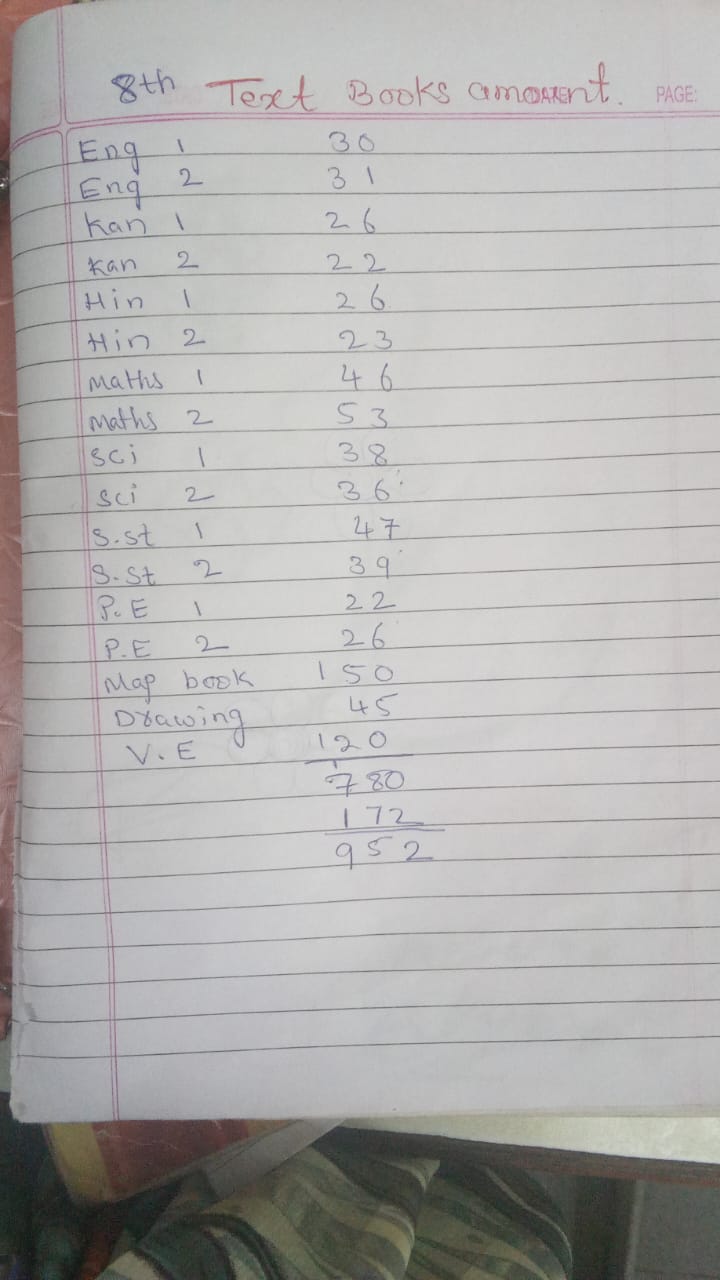 8th Text Books amount. DATE: PAGE:
Eng 1 30
Eng 2 31
Kan 1 26
Kan 2 22
Hin 1 26
Hin 2 23
Maths 1 46
Maths 2 53
Sci 1 38
Sci 2 36
S.st 1 47
S.St 2 39
P.E 1 22
P.E 2 26
Map book 150
Drawing 45
V.E 120
780
172
952